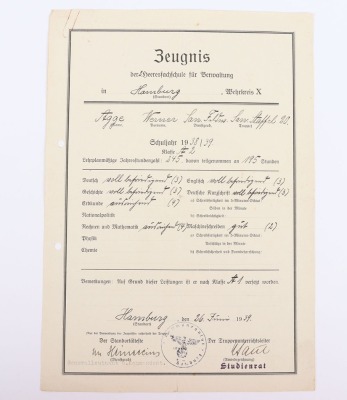 Zeugnis
der Heeresfachschule für Verwaltung
in Hamburg , Wehrkreis X
(Standort)
Agge Werner San. Feldw. San. Staffel 20
Vorname Dienstgrad Truppenteil
Schuljahr 1938/39
Klasse A 2
Lehrplanmäßige Jahresstundenzahl: 245 davon teilgenommen an 195 Stunden
Deutsch voll befriedigend (3) Englisch voll befriedigend (3)
Geschichte voll befriedigend (3) Deutsche Kurzschrift voll befriedigend (3)
Erdkunde ausreichend (4)
Nationalpolitik
Rechnen und Mathematik ausreichend (4) Maschinenschreiben gut (2)
Physik
Chemie
Bemerkungen: Auf Grund dieser Leistungen ist er nach Klasse A 1 versetzt worden.
Hamburg, den 26. Juni 1939.
(Standort)
Der Standortälteste Der Truppenunterrichtsleiter
Studienrat